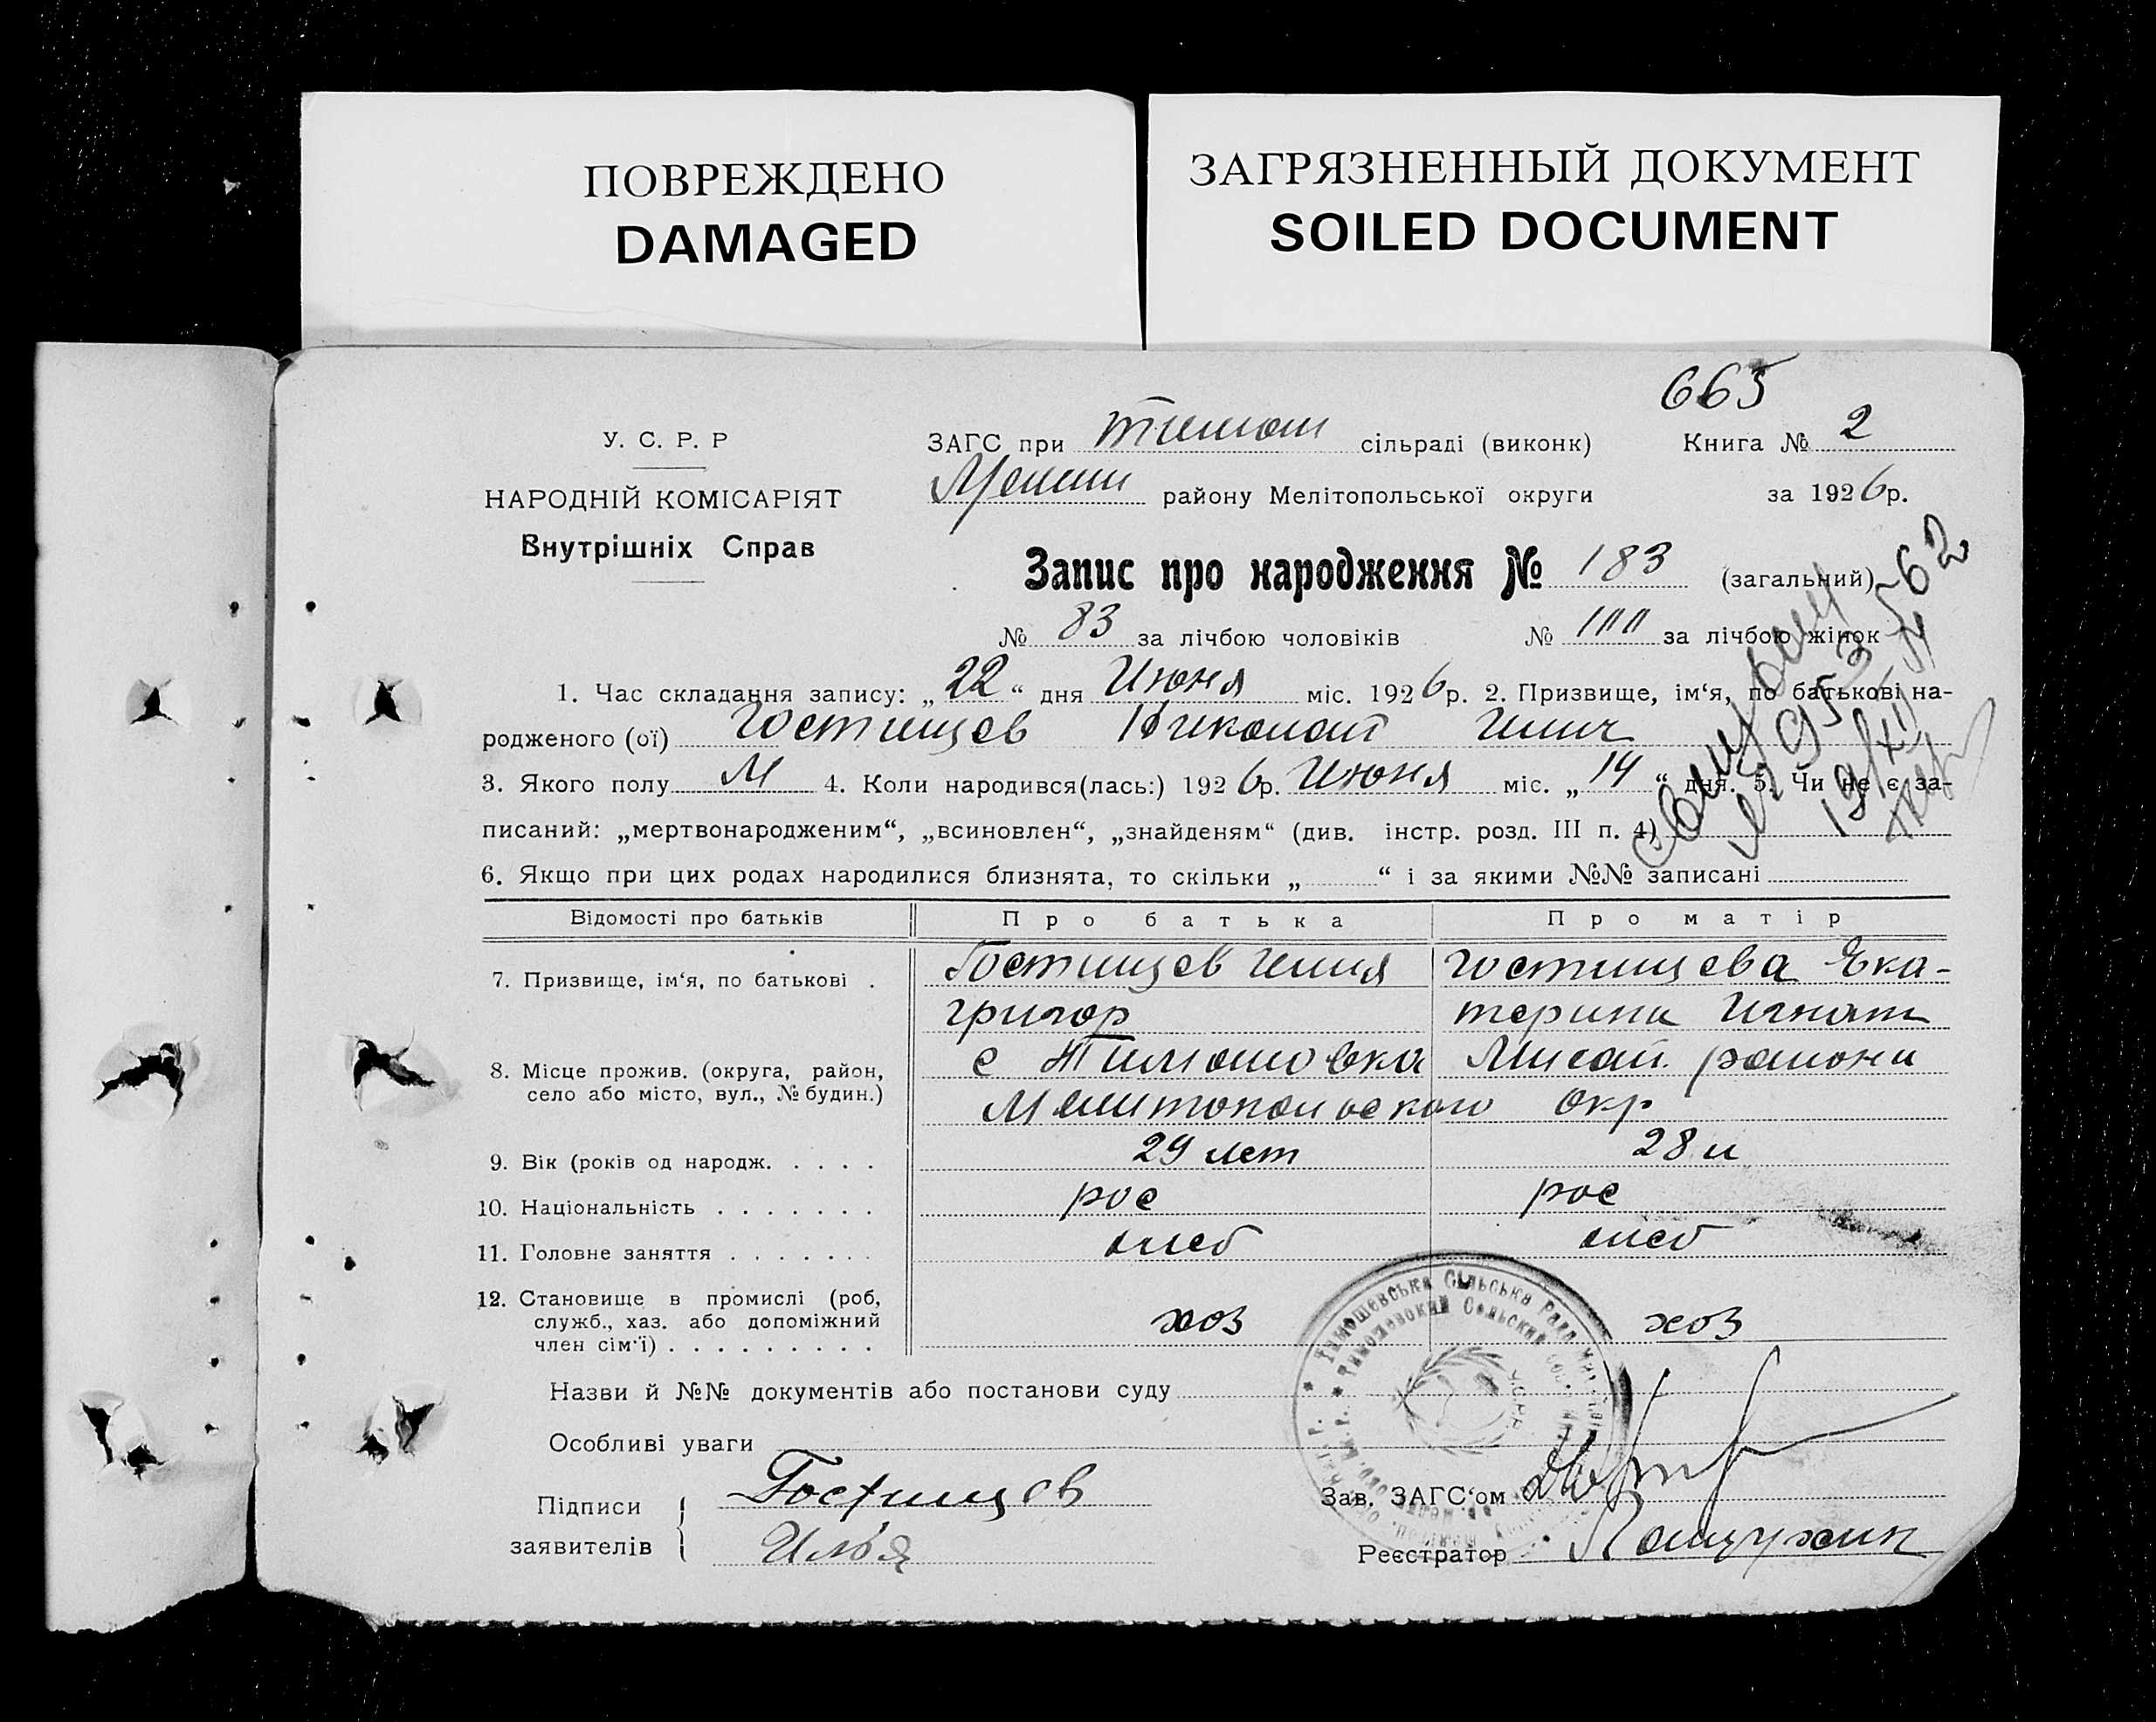 ПОВРЕЖДЕНО
DAMAGED
ЗАГРЯЗНЕННЫЙ ДОКУМЕНТ
SOILED DOCUMENT
665
У. С. Р. Р
НАРОДНІЙ КОМІСАРІЯТ
Внутрішніх Справ
ЗАГС при Тимош сільраді (виконк) Книга № 2
району Мелітопольської округи за 1926р.
Запис про народження № 183 (загальний)
№ 83 за лічбою чоловіків № за лічбою жінок
1. Час складання запису: „22“ дня Июня міс. 1926р. 2. Призвище, ім‘я, по батькові на-
родженого (ої) Гостищев Николай Илич
3. Якого полу М 4. Коли народився(лась:) 1926р. Июня міс. „14“ дня. 5. Чи не є за-
писаний: „мертвонародженим“, „всиновлен“, „знайденям“ (див. інстр. розд. III п. 4)
6. Якщо при цих родах народилися близнята, то скільки „ “ і за якими №№ записані
Відомості про батьків Про батька Про матір
7. Призвище, ім‘я, по батькові . Гостищев Илия Гостищева Ека-
григор терина Игнат
8. Місце прожив. (округа, район, село або місто, вул., № будин.) с Тимошовка района
Мелитопольского окр
9. Вік (років од народж. . . . . 29 лет 28 л
10. Національність . . . . . . . рос рос
11. Головне заняття . . . . . . . хлеб хлеб
12. Становище в промислі (роб, служб., хаз. або допоміжний член сім‘ї) . . . . . . . . . хоз хоз
Назви й №№ документів або постанови суду
Особливі уваги
Підписи заявителів Гостищев
Илья
Зав. ЗАГС‘ом
Реєстратор
Тимошевська Сільська Рада